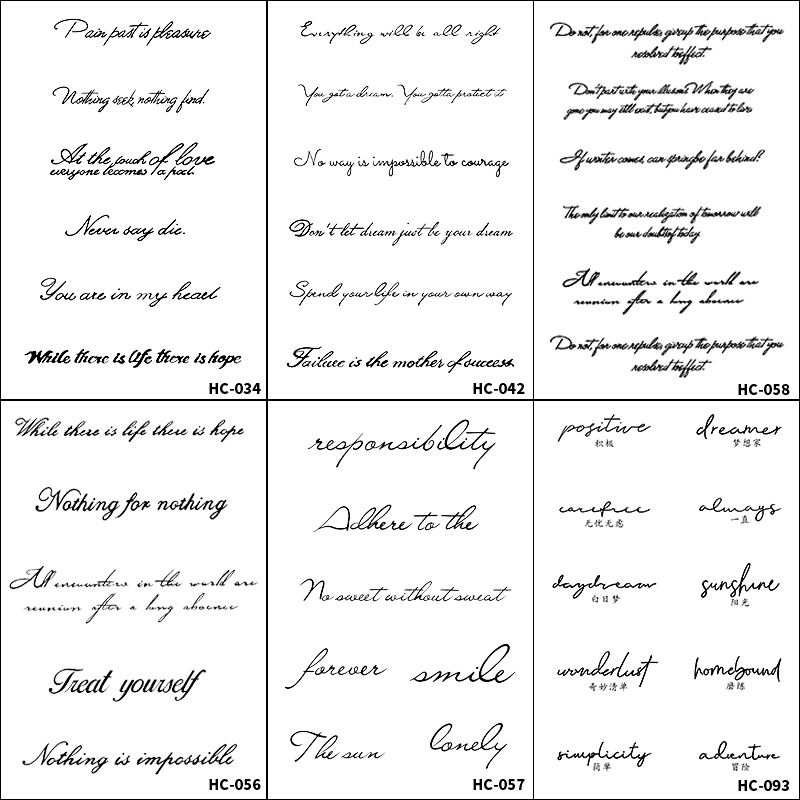 Pain past is pleasure
Nothing seek, nothing find.
At the touch of love
everyone becomes a poet.
Never say die.
You are in my heart
While there is life there is hope
HC-034
Everything will be all right
You got a dream. You gotta protect it
No way is impossible to courage
Don't let dream just be your dream
Spend your life in your own way
Failure is the mother of success
HC-042
Do not, for one repulse, give up the purpose that you
resolved to effect.
Don't part with your illusions. When they are
gone you may still exist, but you have ceased to live
If winter comes, can spring be far behind?
The only limit to our realization of tomorrow will
be our doubts of today
All encounters in the world are
reunion after a long absence
Do not, for one repulse, give up the purpose that you
resolved to effect.
HC-058
While there is life there is hope
Nothing for nothing
All encounters in the world are
reunion after a long absence
Treat yourself
Nothing is impossible
HC-056
responsibility
Adhere to the
No sweet without sweat
forever smile
The sun lonely
HC-057
positive dreamer
积极 梦想家
carefree always
无忧无虑 一直
daydream sunshine
白日梦 阳光
wonderlust homebound
奇妙清单 磨练
simplicity adventure
简单 冒险
HC-093